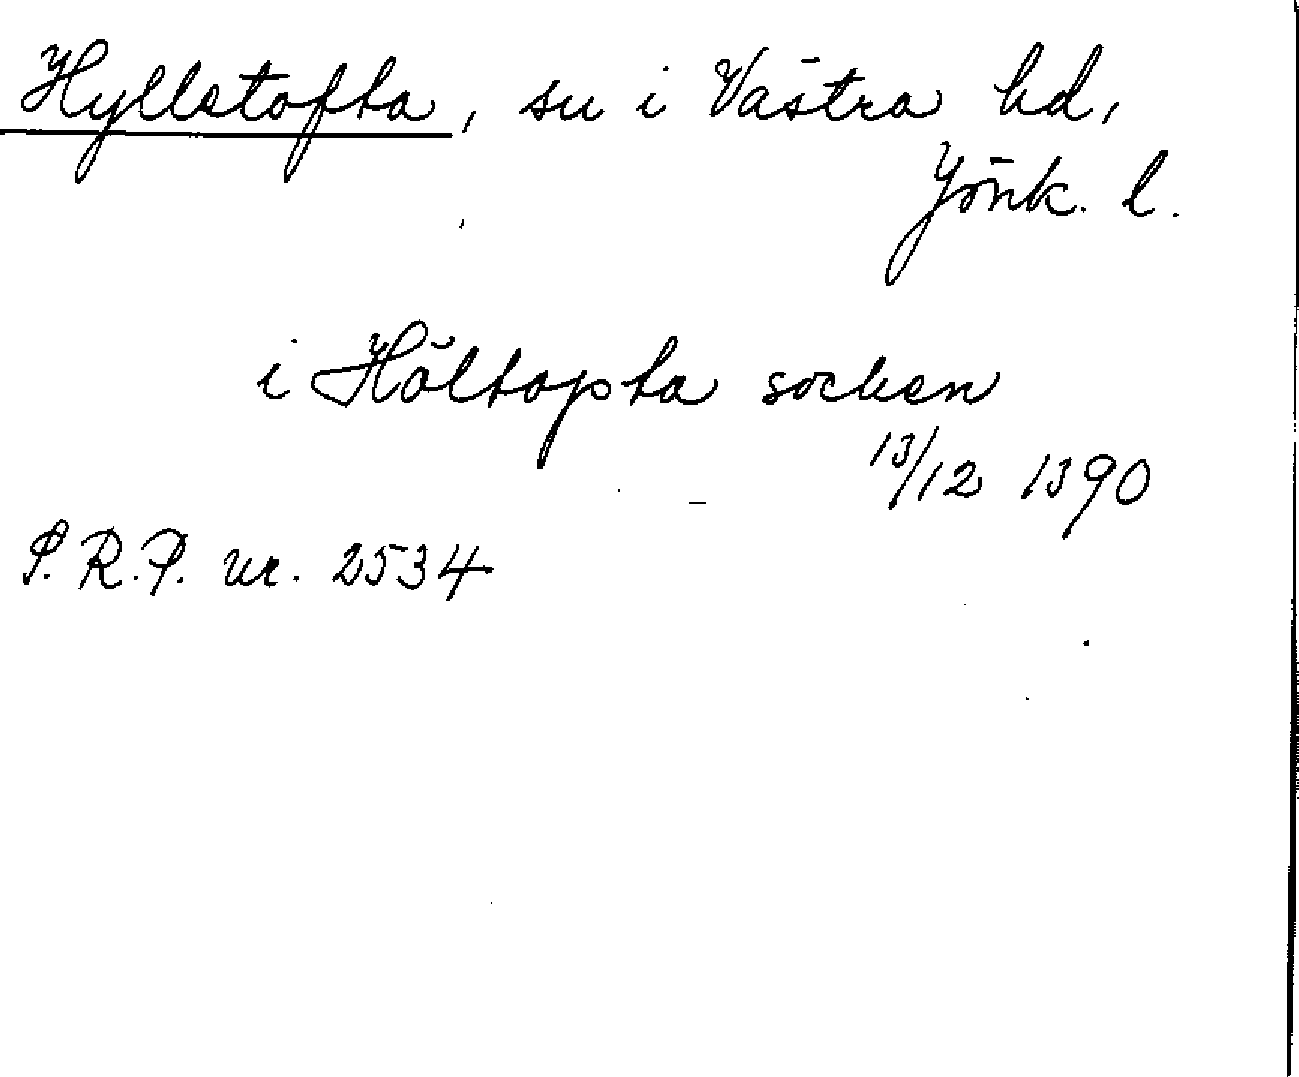 Hylletofta, sn i Västra hd,
Jönk. l.
i Höltopta socken
13/12 1390
S.R.P. nr. 2534